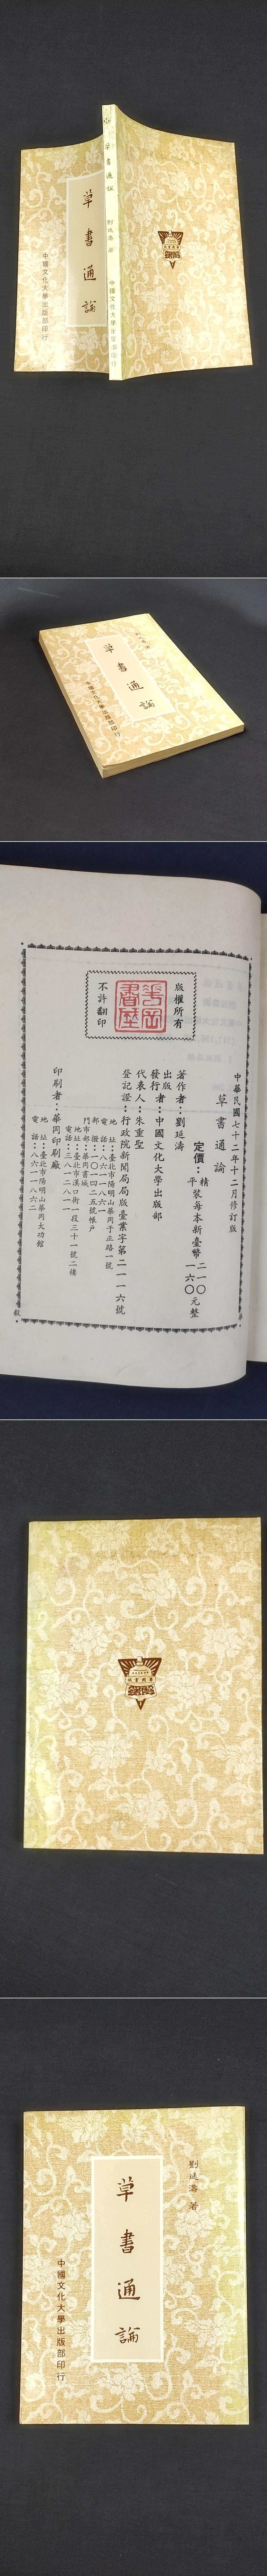 草書通論
劉延濤 著
中國文化大學出版部印行
草書通論
中國文化大學出版部印行
草書通論
中國文化大學出版部印行
版權所有
華岡書城
不許翻印
中華民國七十二年十二月修訂版
草書通論
定價：精平裝每本新臺幣二一〇一六〇元整
著作者：劉延濤
出版者
發行者：中國文化大學出版部
代表人：朱重聖
登記證：行政院新聞局局版臺業字第二一一六號
地 址：臺北市陽明山華岡
電 話：八六一一八六一
門市部：華岡書城
地 址：臺北市漢口街一段三十一號二樓
電 話：三八一二八一一
印刷者：華岡印刷廠
地 址：臺北市陽明山華岡大功館
電 話：八六一一八六二
劉延濤 著
草書通論
中國文化大學出版部印行